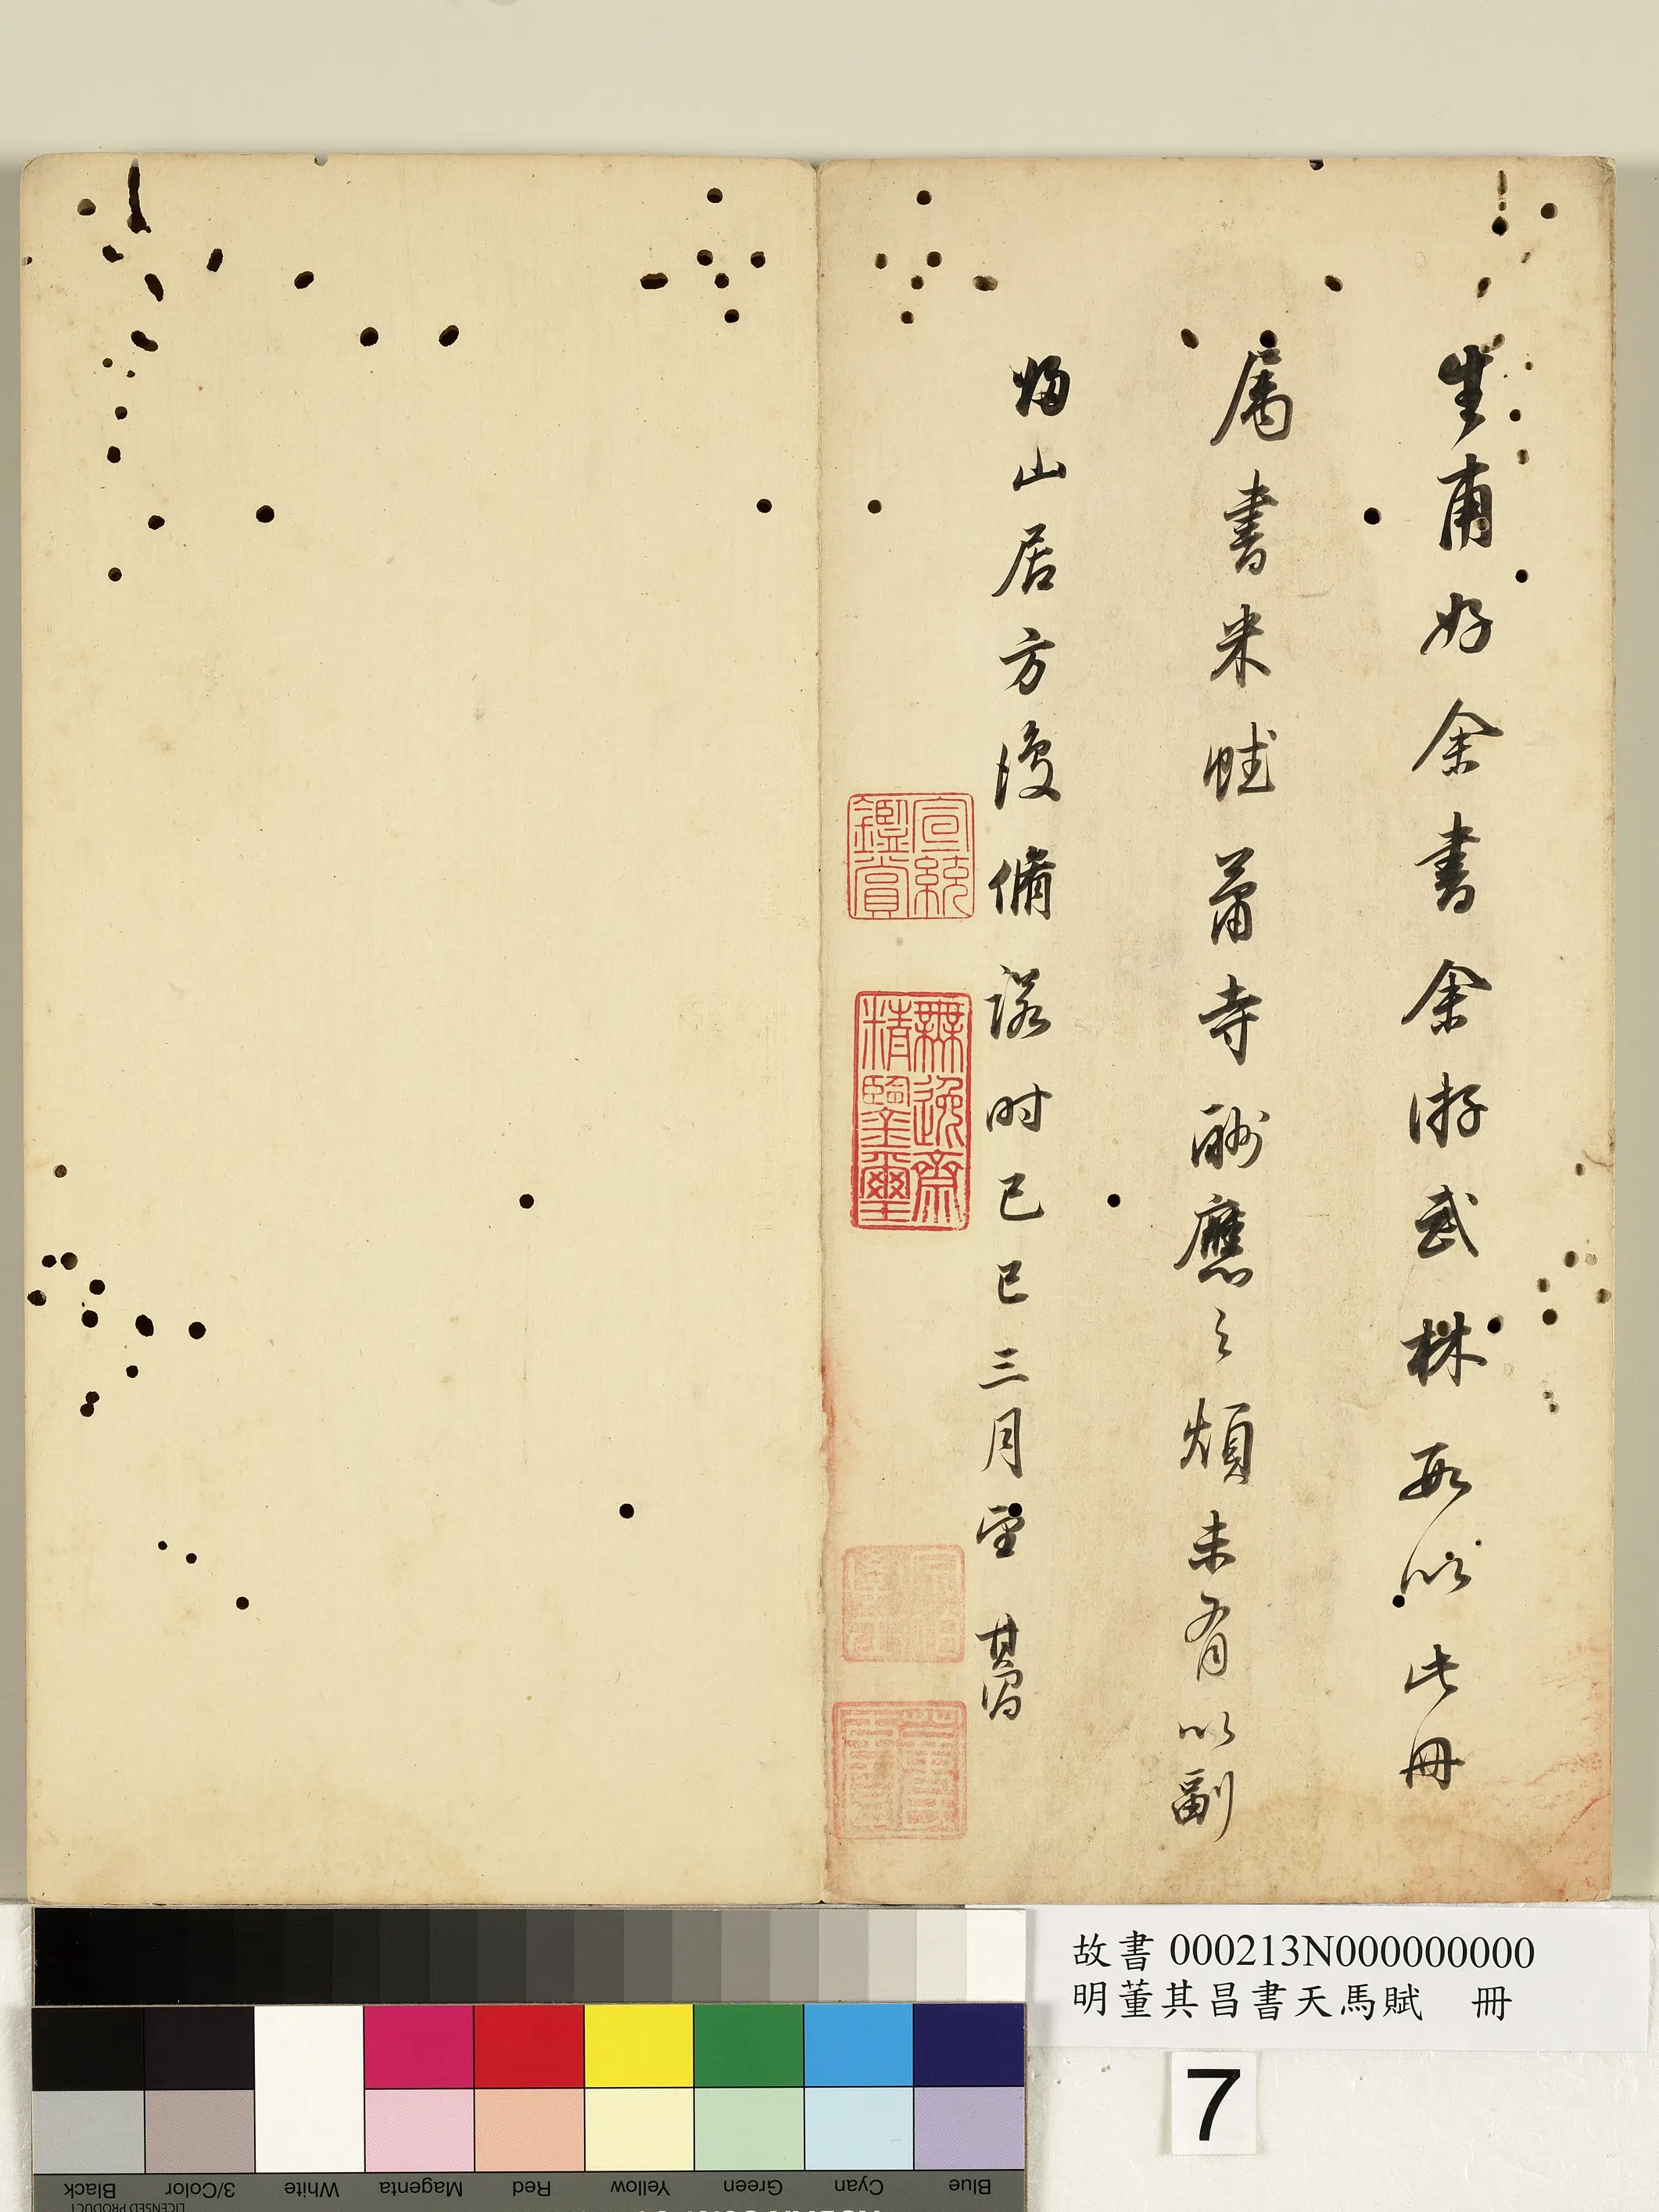 生甫好余書余游武林以此冊
属書米賦蕭寺酬應之煩未有以副
歸山居方復脩諾时己巳三月望 其昌
宣統鑑賞
無逸齋精鑒璽
故書 000213N000000000
明董其昌書天馬賦 冊
7
Blue Cyan Green Yellow Red Magenta White 3/Color Black
LICENSED PRODUCT